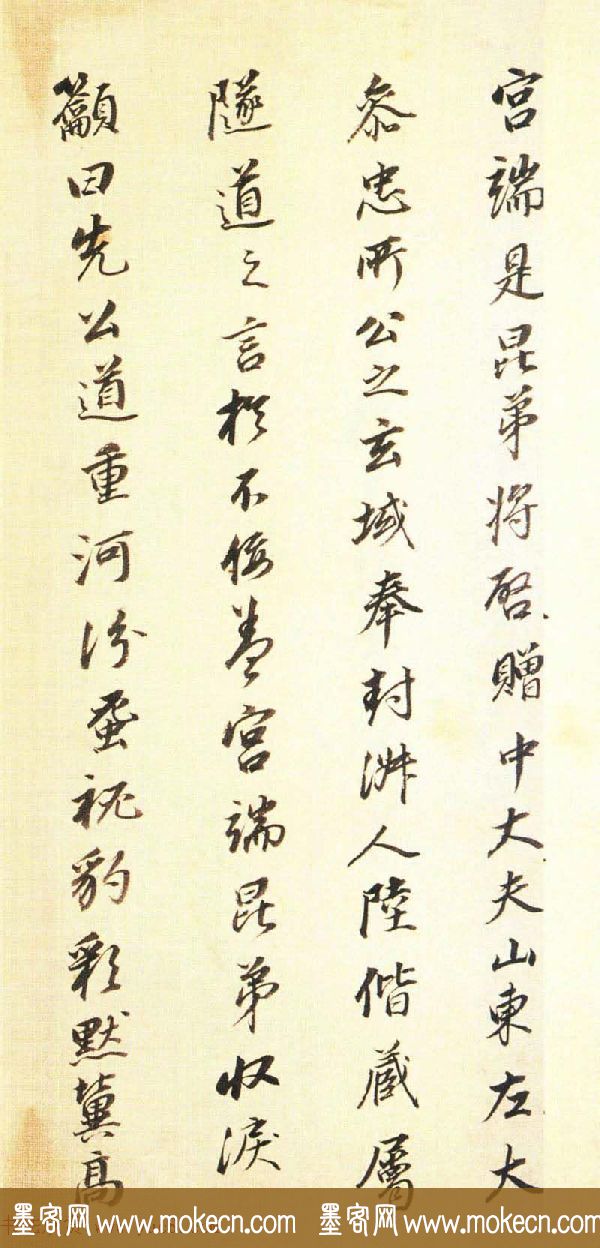 宫端是昆弟将啓贈中大夫山東左大
叅忠所公之玄域奉封淑人陸偕藏屬
隧道之言於不佞盖宫端昆弟收淚
籲曰先公道重河汾蚤祕豹彩默冀高
墨客网 www.mokecn.com 墨客网 www.mokecn.com